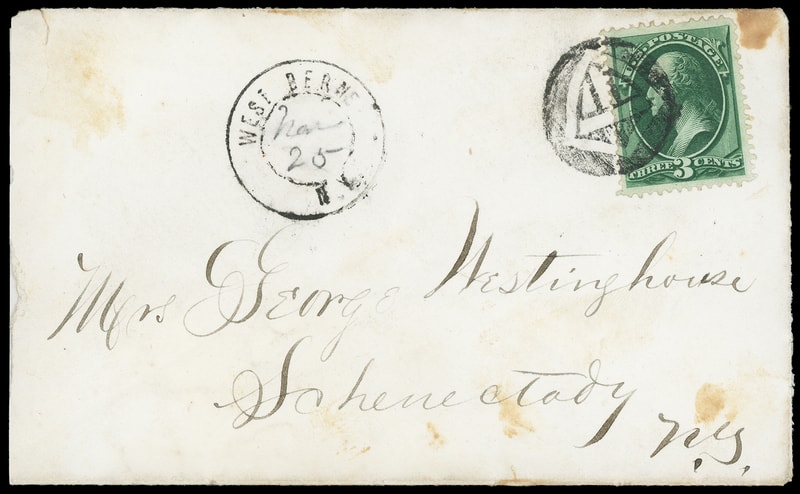 WEST BERNE
25
N.Y.
U.S. POSTAGE
THREE 3 CENTS
Mrs George Westinghouse
Schenectady
N.Y.